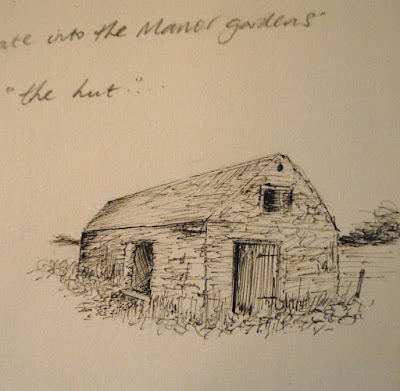 ate into the Manor gardens"
"the hut"...